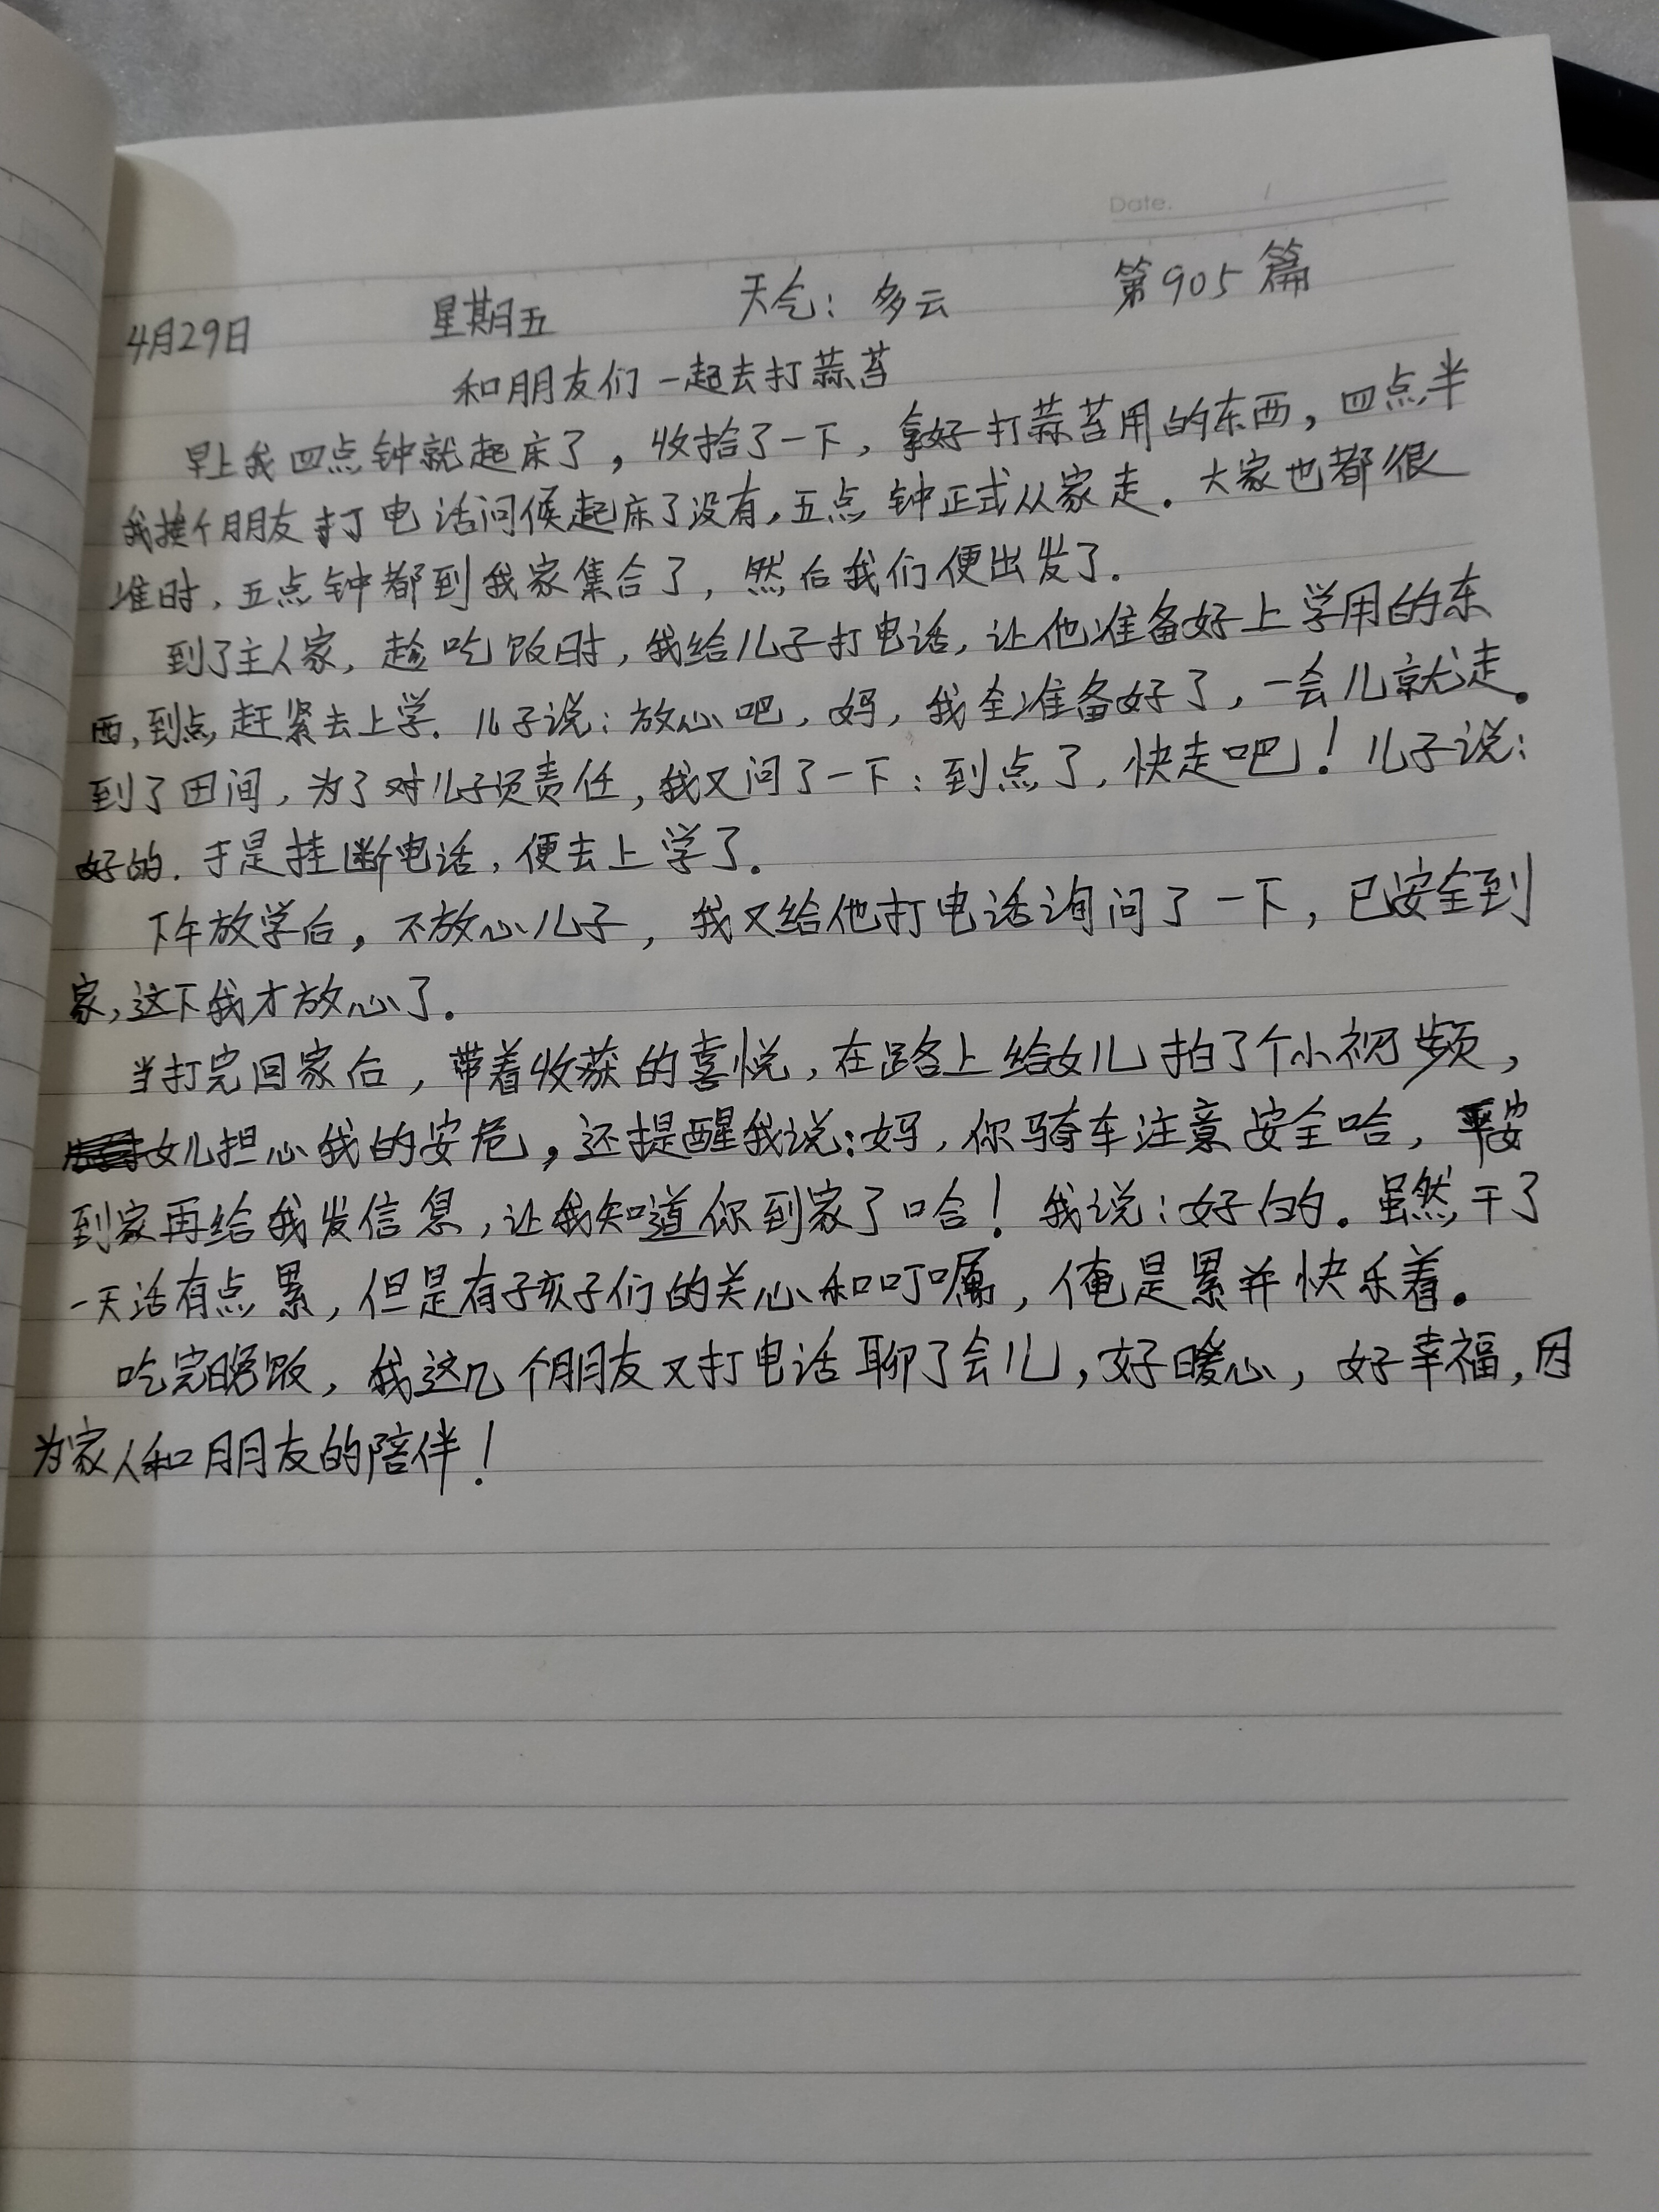 Date. /
4月29日 星期五 天气：多云 第905篇
和朋友们一起去打蒜苔
早上我四点钟就起床了，收拾了一下，拿好打蒜苔用的东西，四点半
我挨个朋友打电话问候起床了没有，五点钟正式从家走．大家也都很
准时，五点钟都到我家集合了，然后我们便出发了．
到了主人家，趁吃饭时，我给儿子打电话，让他准备好上学用的东
西，到点赶紧去上学．儿子说：放心吧，妈，我全准备好了，一会儿就走。
到了田间，为了对儿子负责任，我又问了一下：到点了，快走吧！儿子说：
好的．于是挂断电话，便去上学了．
下午放学后，不放心儿子，我又给他打电话询问了一下，已安全到
家，这下我才放心了．
当打完回家后，带着收获的喜悦，在路上给女儿拍了个小视频，
女儿担心我的安危，还提醒我说：妈，你骑车注意安全哈，平安
到家再给我发信息，让我知道你到家了哈！我说：好的。虽然干了
一天活有点累，但是有孩子们的关心和叮嘱，俺是累并快乐着。
吃完晚饭，我这几个朋友又打电话聊了会儿，好暖心，好幸福，因
为家人和朋友的陪伴！